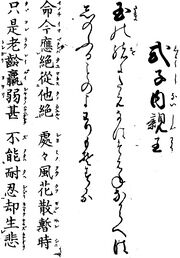 式子内親王
玉の緒よたえなはたえねなからへは
しのふることのよわりもそする
命今應絶從他絶　處々風花散暫時
只是老齡羸弱甚　不能耐忍却生悲